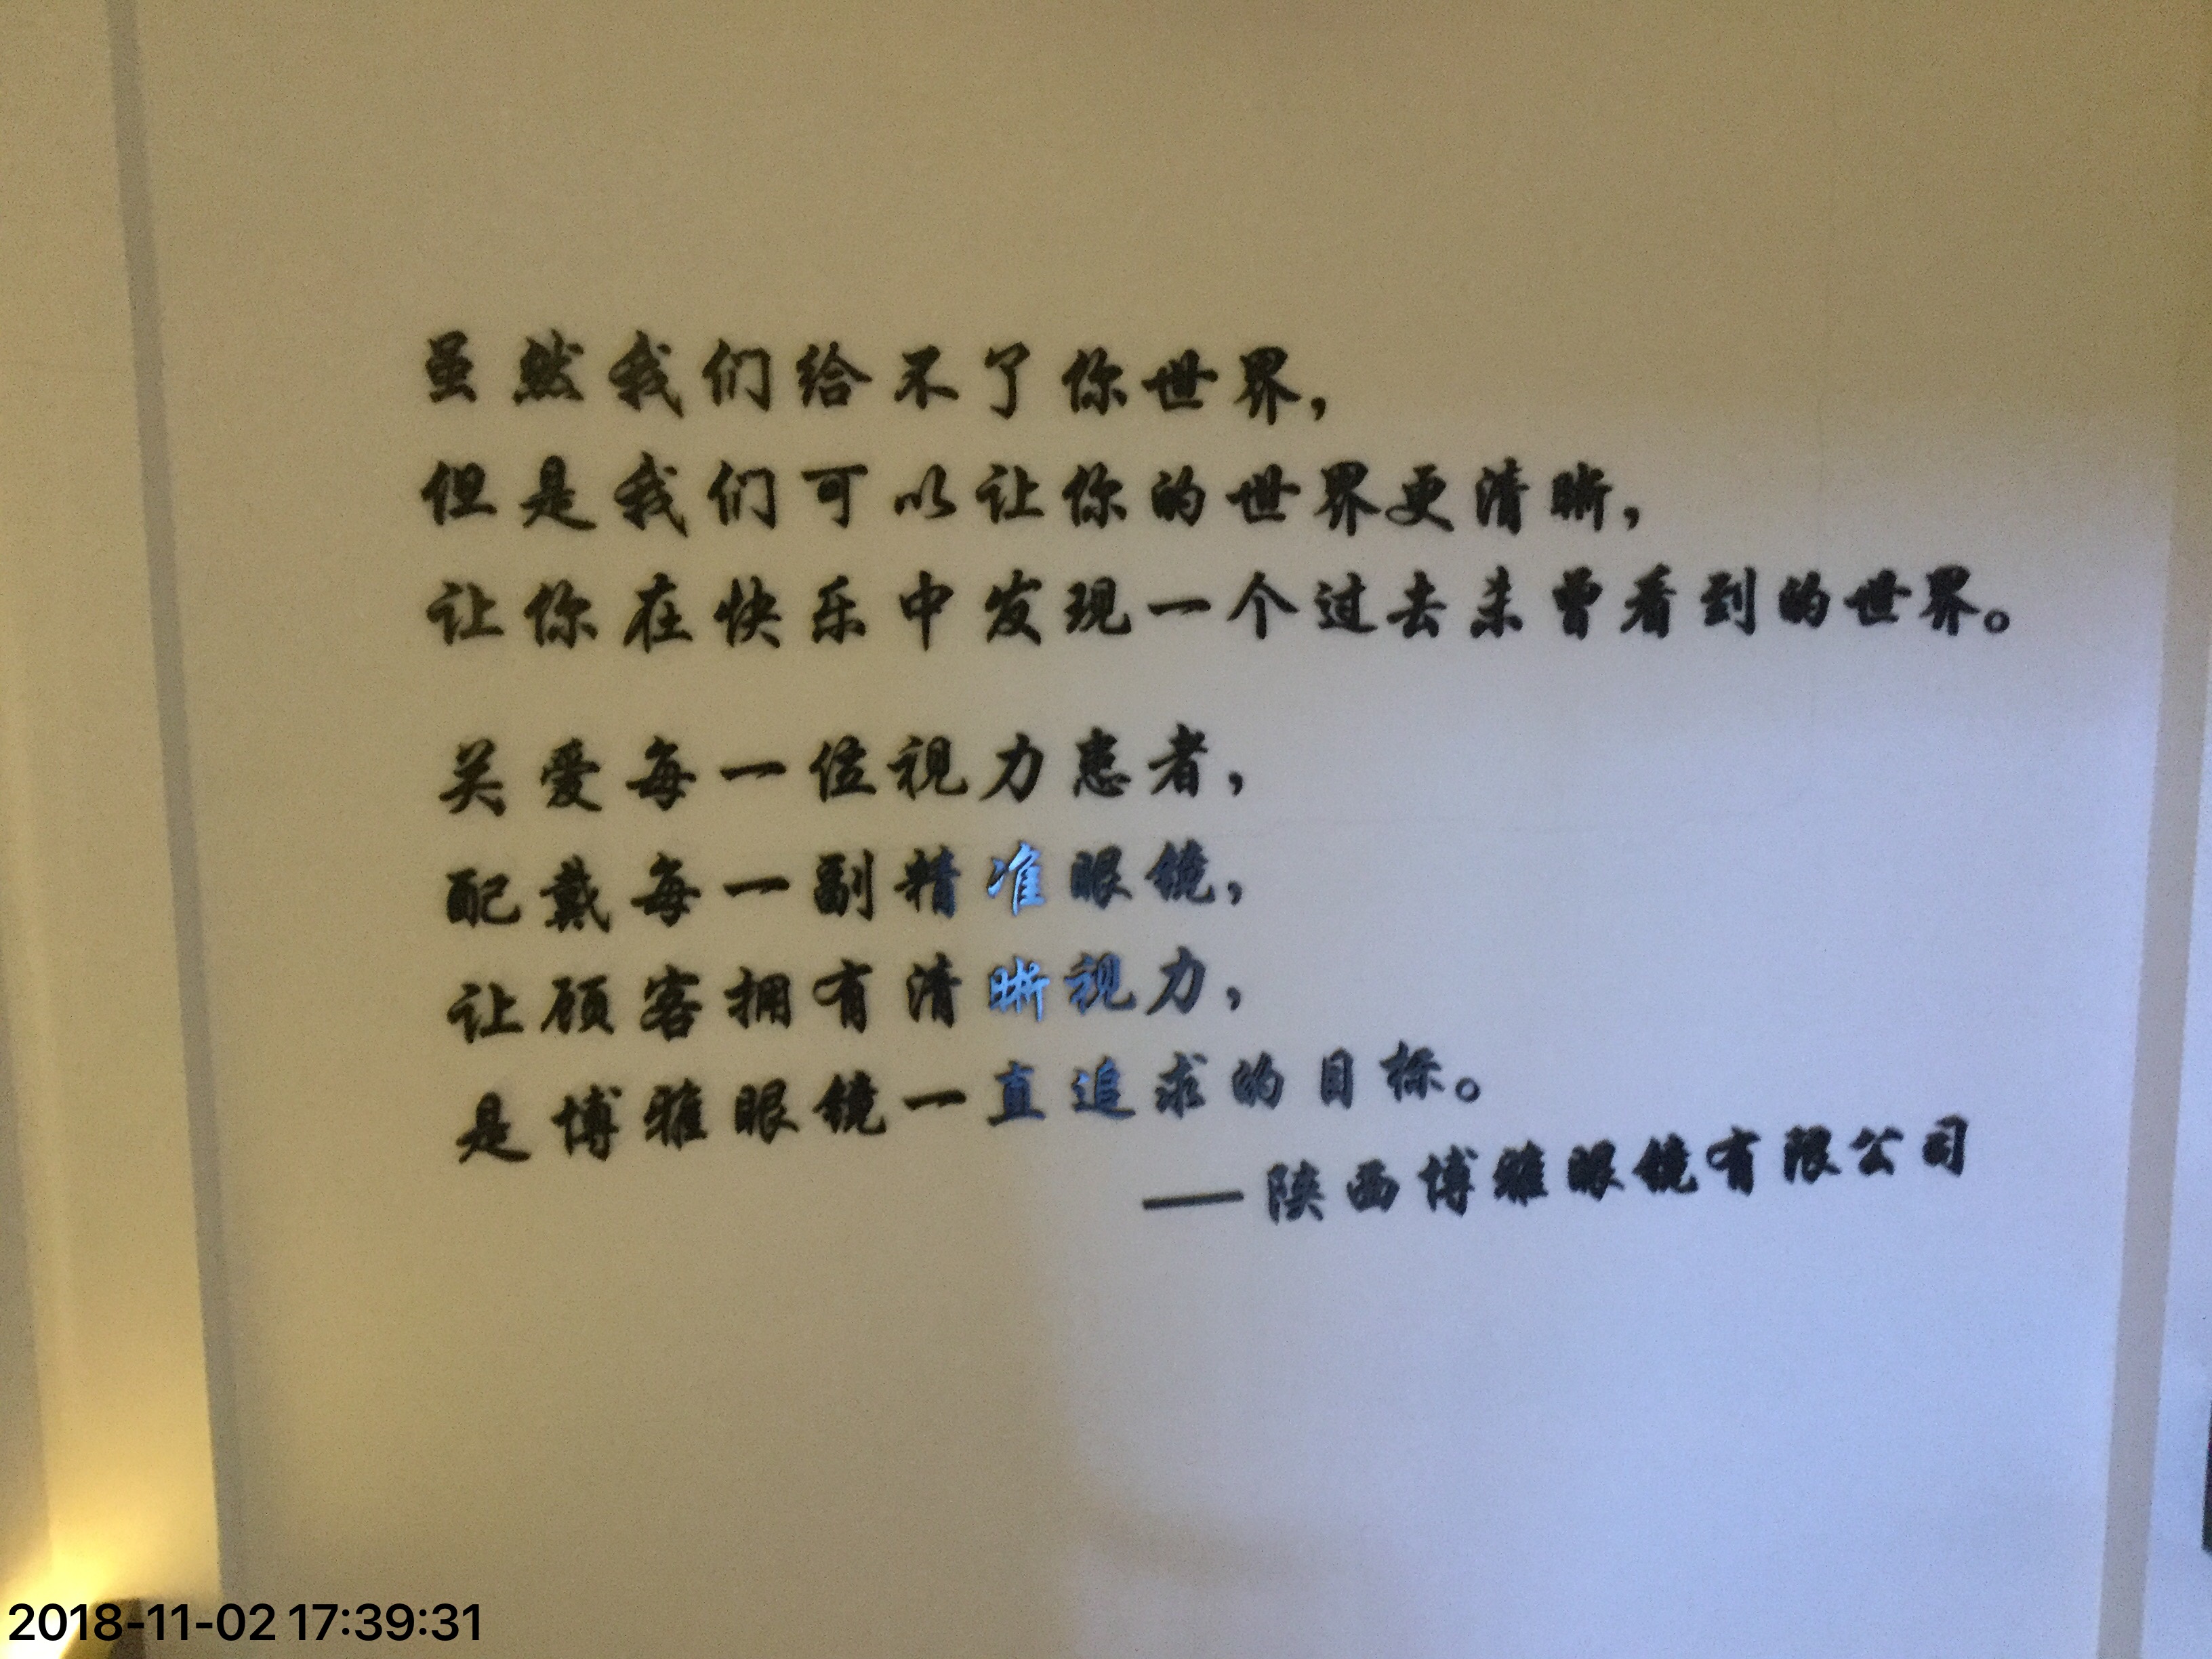 虽然我们给不了你世界，
但是我们可以让你的世界更清晰，
让你在快乐中发现一个过去未曾看到的世界。
关爱每一位视力患者，
配戴每一副精准眼镜，
让顾客拥有清晰视力，
是博雅眼镜一直追求的目标。
——陕西博雅眼镜有限公司
2018-11-02 17:39:31